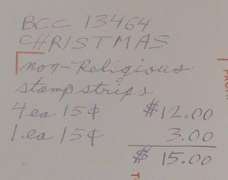 BCC 13464
CHRISTMAS
non-Religious
stamp strips
4 ea 15¢ $12.00
1 ea 15¢ 3.00
$ 15.00